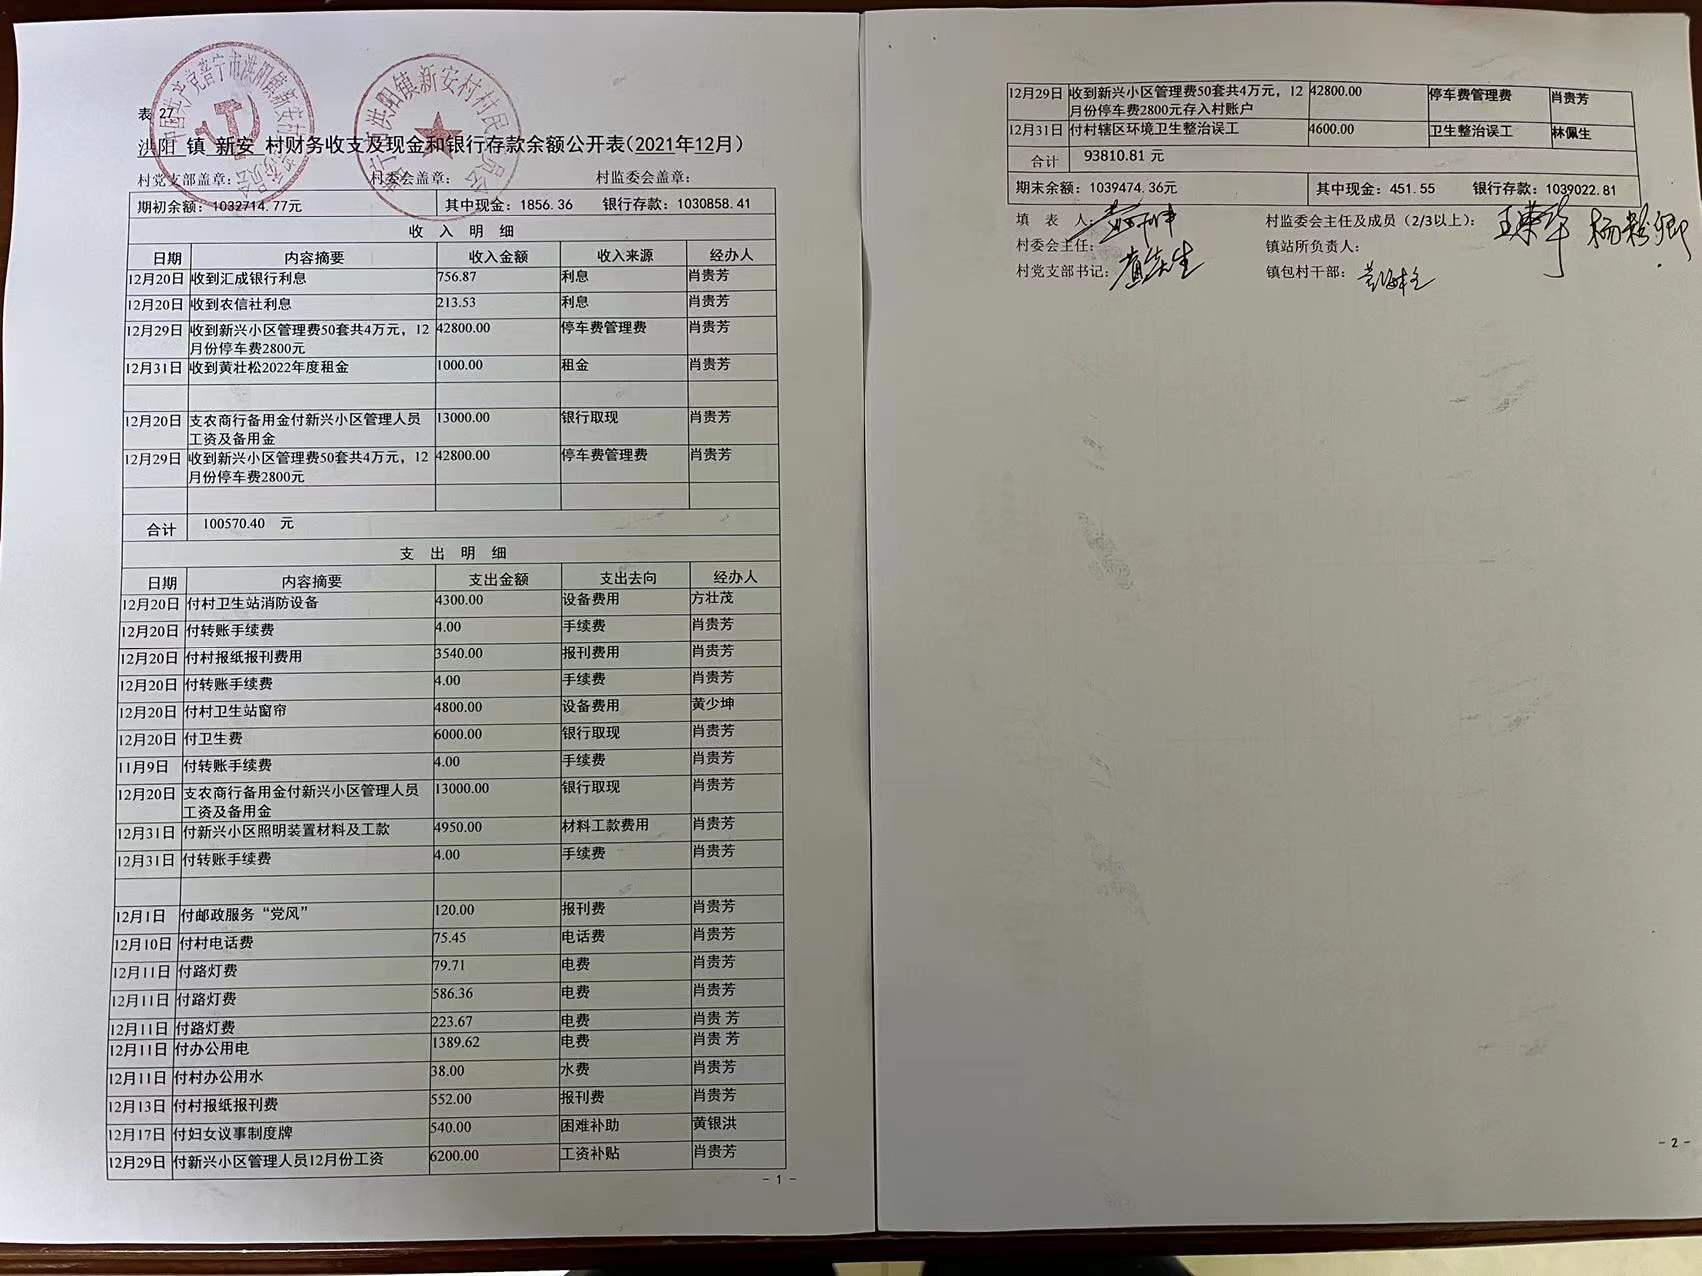 表 27
洪阳 镇 新安 村财务收支及现金和银行存款余额公开表(2021年12月)
村党支部盖章: 村委会盖章: 村监委会盖章:
期初余额: 1032714.77元 其中现金: 1856.36 银行存款: 1030858.41
收 入 明 细
日期 内容摘要 收入金额 收入来源 经办人
12月20日 收到汇成银行利息 756.87 利息 肖贵芳
12月20日 收到农信社利息 213.53 利息 肖贵芳
12月29日 收到新兴小区管理费50套共4万元，12 42800.00 停车费管理费 肖贵芳
月份停车费2800元
12月31日 收到黄壮松2022年度租金 1000.00 租金 肖贵芳
12月20日 支农商行备用金付新兴小区管理人员 13000.00 银行取现 肖贵芳
工资及备用金
12月29日 收到新兴小区管理费50套共4万元，12 42800.00 停车费管理费 肖贵芳
月份停车费2800元
合计 100570.40 元
支 出 明 细
日期 内容摘要 支出金额 支出去向 经办人
12月20日 付村卫生站消防设备 4300.00 设备费用 方壮茂
12月20日 付转账手续费 4.00 手续费 肖贵芳
12月20日 付村报纸报刊费用 3540.00 报刊费用 肖贵芳
12月20日 付转账手续费 4.00 手续费 肖贵芳
12月20日 付村卫生站窗帘 4800.00 设备费用 黄少坤
12月20日 付卫生费 6000.00 银行取现 肖贵芳
11月9日 付转账手续费 4.00 手续费 肖贵芳
12月20日 支农商行备用金付新兴小区管理人员 13000.00 银行取现 肖贵芳
工资及备用金
12月31日 付新兴小区照明装置材料及工款 4950.00 材料工款费用 肖贵芳
12月31日 付转账手续费 4.00 手续费 肖贵芳
12月1日 付邮政服务“党风” 120.00 报刊费 肖贵芳
12月10日 付村电话费 75.45 电话费 肖贵芳
12月11日 付路灯费 79.71 电费 肖贵芳
12月11日 付路灯费 586.36 电费 肖贵芳
12月11日 付路灯费 223.67 电费 肖贵 芳
12月11日 付办公用电 1389.62 电费 肖贵 芳
12月11日 付村办公用水 38.00 水费 肖贵芳
12月13日 付村报纸报刊费 552.00 报刊费 肖贵芳
12月17日 付妇女议事制度牌 540.00 困难补助 黄银洪
12月29日 付新兴小区管理人员12月份工资 6200.00 工资补贴 肖贵芳
- 1 -
12月29日 收到新兴小区管理费50套共4万元，12 42800.00 停车费管理费 肖贵芳
月份停车费2800元存入村账户
12月31日 付村辖区环境卫生整治误工 4600.00 卫生整治误工 林佩生
合计 93810.81 元
期末余额: 1039474.36元 其中现金: 451.55 银行存款: 1039022.81
填 表 人: 村监委会主任及成员（2/3以上）:
村委会主任: 镇站所负责人:
村党支部书记: 镇包村干部:
- 2 -